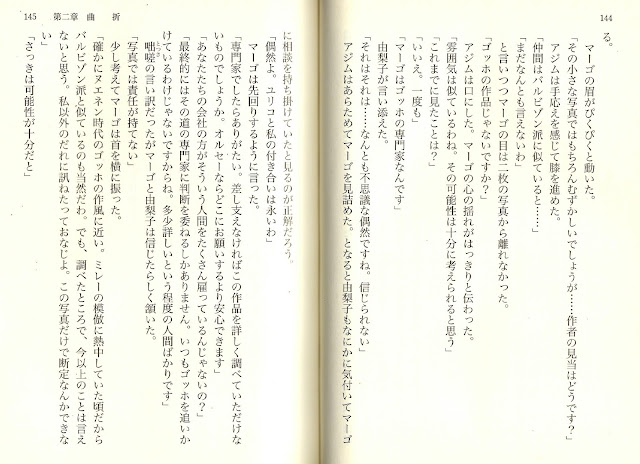 144
る。
マーゴの眉がぴくぴくと動いた。
「その小さな写真ではもちろんむずかしいでしょうが……作者の見当はどうです?」
アジムは手応えを感じて膝を進めた。
「仲間はバルビゾン派に似ていると……」
「まだなんとも言えないわ」
と言いつつマーゴの目は二枚の写真から離れなかった。
「ゴッホの作品じゃないですか?」
アジムは口にした。マーゴの心の揺れがはっきりと伝わった。
「雰囲気は似ているわね。その可能性は十分に考えられると思う」
「これまでに見たことは?」
「いいえ。一度も」
「マーゴはゴッホの専門家なんです」
由梨子が言い添えた。
「それはそれは……なんとも不思議な偶然ですね。信じられない」
アジムはあらためてマーゴを見詰めた。となると由梨子もなにかに気付いてマーゴ
145 第二章 曲 折
に相談を持ち掛けていたと見るのが正解だろう。
「偶然よ。ユリコと私の付き合いは永いわ」
マーゴは先回りするように言った。
「専門家でしたらありがたい。差し支えなければこの作品を詳しく調べていただけな
いものでしょうか。オルセーならどこにお願いするより安心できます」
「あなたたちの会社の方がそういう人間をたくさん雇っているんじゃないの?」
「最終的にはその道の専門家に判断を委ねるしかありません。いつもゴッホを追いか
けているわけじゃないですからね。多少詳しいという程度の人間ばかりです」
咄嗟の言い訳だったがマーゴと由梨子は信じたらしく頷いた。
「写真では責任が持てない」
少し考えてマーゴは首を横に振った。
「確かにヌエネン時代のゴッホの作風に近い。ミレーの模倣に熱中していた頃だから
バルビゾン派と似ているのも当然だわ。でも、調べたところで、今以上のことは言え
ないと思う。私以外のだれに訊ねたっておなじよ。この写真だけで断定なんかできな
い」
「さっきは可能性が十分だと」